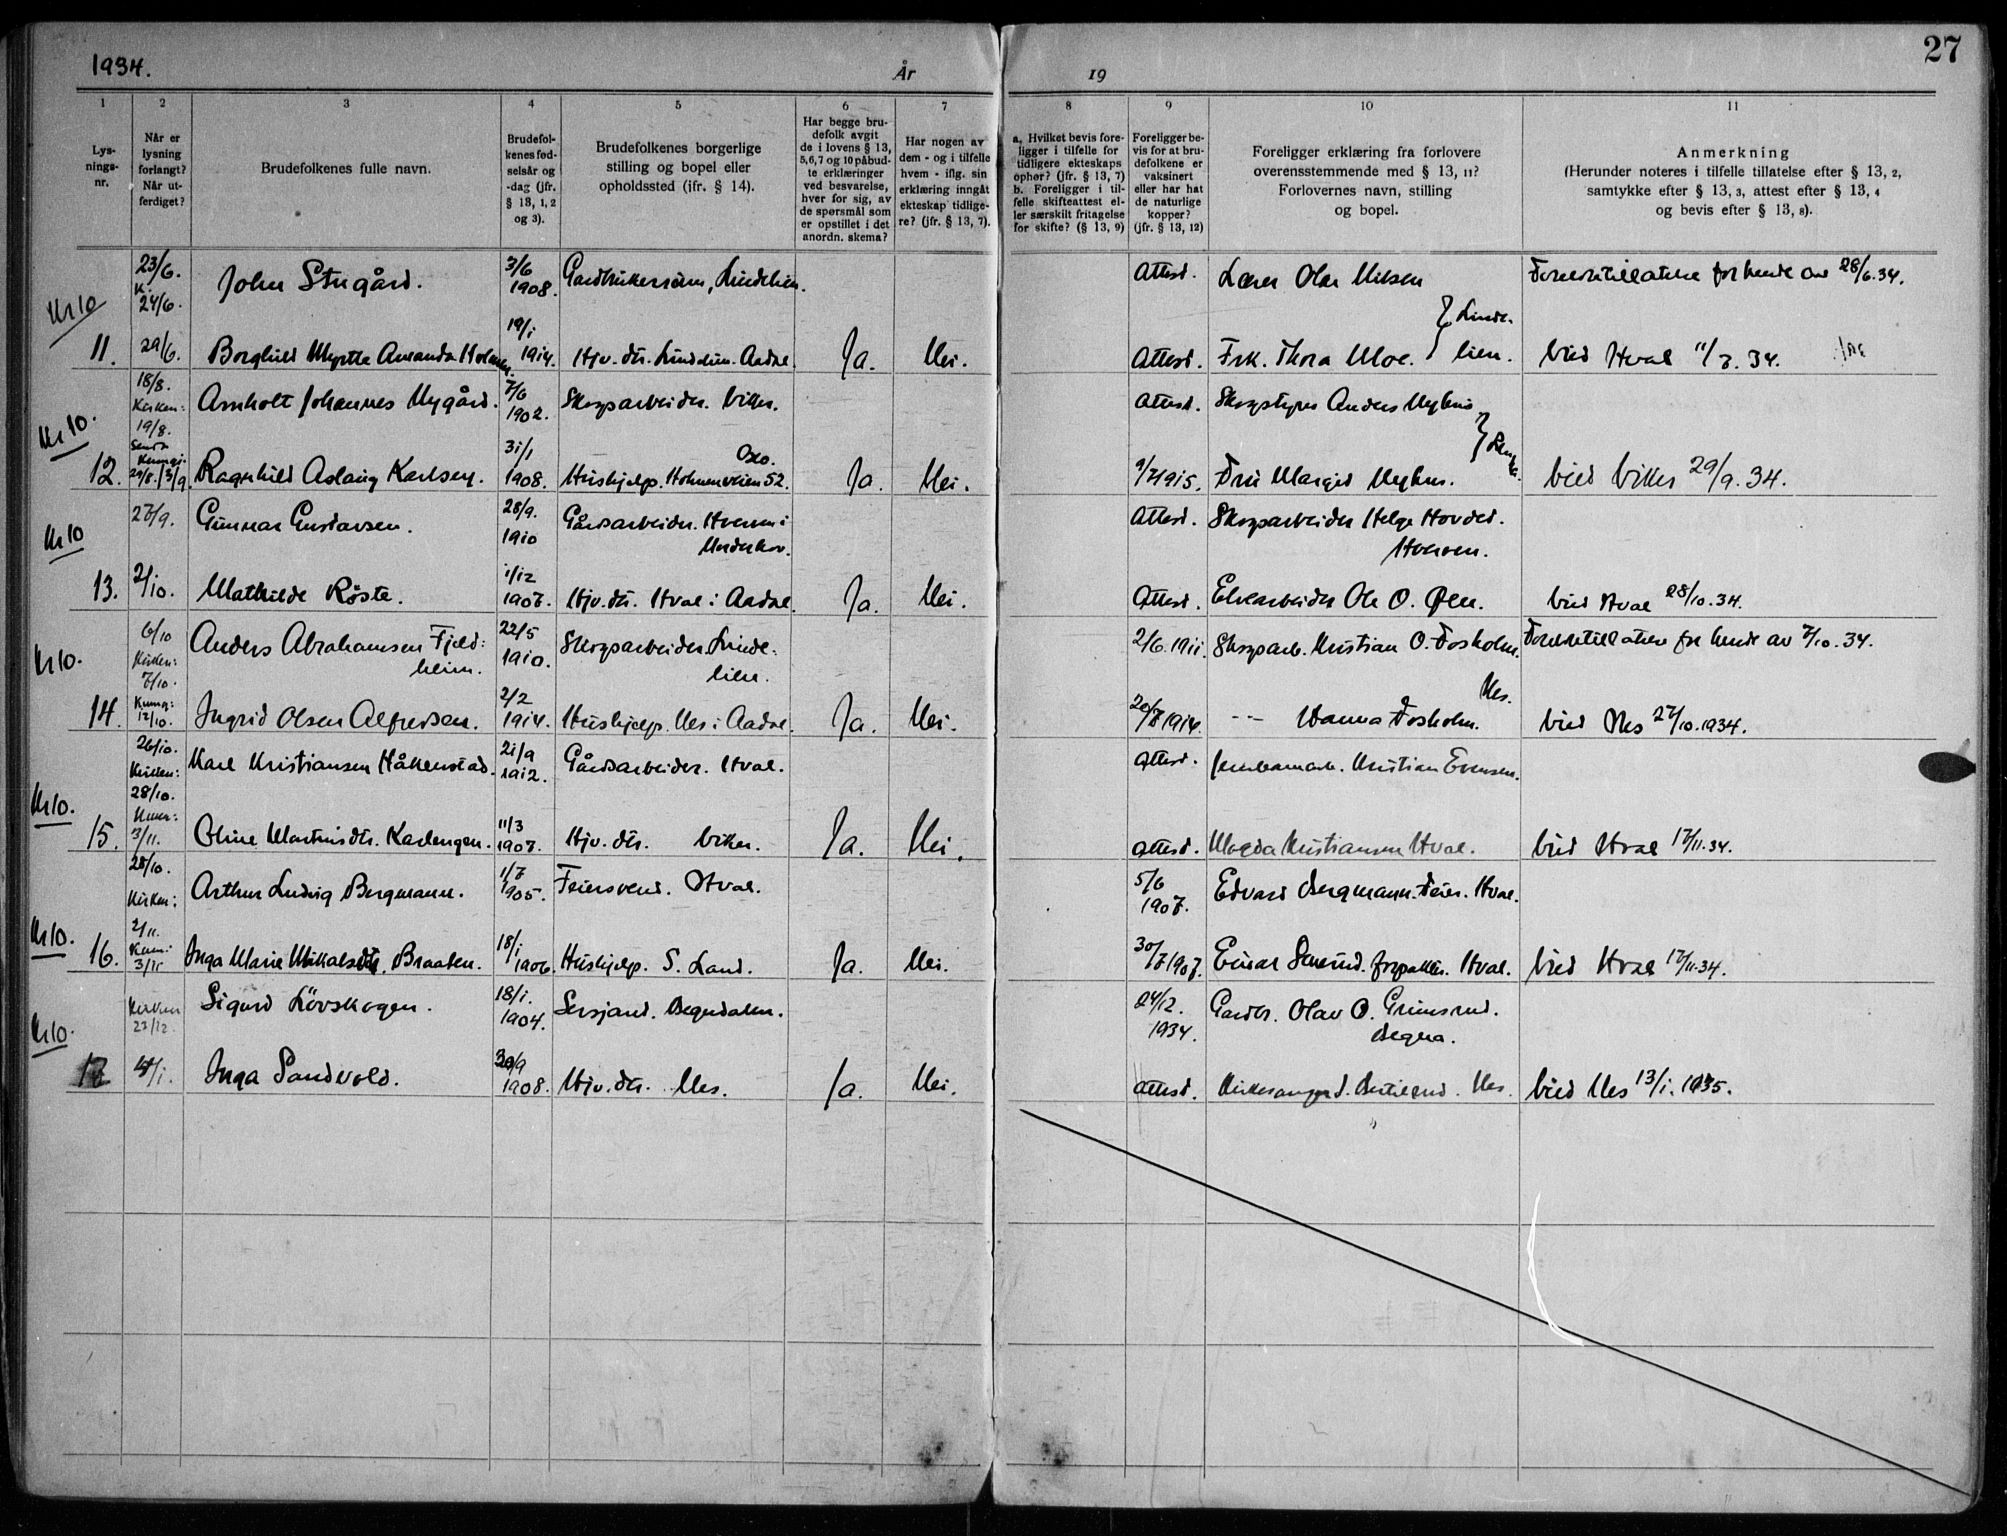 1934. År 19 27
1 2 3 4 5 6 7 8 9 10 11
Lys-
nings-
nr.
Når er
lysning
forlangt?
Når ut-
ferdiget?
Brudefolkenes fulle navn.
Brudefol-
kenes fød-
selsår og
-dag (jfr.
§ 13, 1, 2
og 3).
Brudefolkenes borgerlige
stilling og bopel eller
opholdssted (jfr. § 14).
Har begge bru-
defolk avgit
de i lovens § 13,
5,6,7 og 10 påbud-
te erklæringer
ved besvarelse,
hver for sig, av
de spørsmål som
er opstillet i det
anordn. skema?
Har nogen av
dem - og i tilfelle
hvem - iflg. sin
erklæring inngåt
ekteskap tidlige-
re? (jfr. § 13, 7).
a. Hvilket bevis fore-
ligger i tilfelle for
tidligere ekteskaps
ophør? (jfr. § 13, 7)
b. Foreligger i til-
felle skifteattest el-
ler særskilt fritagelse
for skifte? (§ 13, 9)
Foreligger be-
vis for at bru-
defolkene er
vaksinert
eller har hat
de naturlige
kopper?
(jfr. § 13, 12)
Foreligger erklæring fra forlovere
overensstemmende med § 13, 11?
Forlovernes navn, stilling
og bopel.
Anmerkning
(Herunder noteres i tilfelle tillatelse efter § 13, 2,
samtykke efter § 13, 3, attest efter § 13, 4
og bevis efter § 13, 8).
Kr 10 23/6. K. 24/6. John Stugård. 3/6 1908. Gardbrukersønn, Lindelien. Attest. Lærer Olav Nilsen for hende av 28/6.34.
11. 29/6. Borghild Myrtle Amanda Holmen. 19/1 1914. Hjv. dtr. Lindelien. Aadal. Ja. Nei. Attest. Frk. Thora Moe. } Linde- lien. Vied Hval 11/7. 34.
Kr 10. 18/8. Kirken: 19/8. Arnholt Johannes Nygård. 7/6 1902. Skogsarbeider. Viker. Attest. Skogstyrer Anders Nyhus
12. 29/8. 3/9. Ragnhild Aslaug Karlsen. 31/1 1908. Hushjelp. Holmenveien 52. Oslo. Ja. Nei. 9/7 1915. Fru Margit Nyhus. Vied Viker 29/9. 34.
Kr 10 27/9. Gunnar Gustavsen. 28/9. 1910 Gårdsarbeider. Hverven i Norderhov. Attest. Skogsarbeider Helge Hovdet. Hverven.
13. 2/10. Mathilde Røste. 1/12 1907. Hjv. dtr. Hval i Aadal. Ja. Nei. Attest. Elvearbeider Ole O. Øen. Vied Hval 28/10.34.
Kr 10. 6/10 Kirken: 7/10. Anders Abrahamsen Fjeld- heim. 22/5 1910. Skogsarbeider. Linde- lien. 2/6.1911. Skogsarb. Kristian O. Fosholm. Nes. for hende av 7/10.34.
14. Kunng: 12/10. Ingrid Olsen Alfredsen. 2/2 1914. Hushjelp. Nes i Aadal. Ja. Nei. 20/7 1914. -- Wanna Fosholm. Vied Nes 27/10.1934.
Kr 10. 26/10. Kirken: 28/10. Karl Kristiansen Håkenstad. 21/9 1912. Gårdsarbeider. Hval. Attest. Kristian Evensen.
15. 3/11. Oline Martinsdtr. Karlengen. 11/3 1907. Hjv. dtr. Viker. Ja. Nei. Attest. Magda Kristiansen Hval. Vied Hval 17/11.34.
Kr 10. 28/10. Kirken: 2/11. Arthur Ludvig Bergmann. 1/7 1905. Feiersvend. Hval. 5/6 1907. Edvard Bergmann. Feier. Hval.
16. Kunn: 3/11 Inga Marie Mikalsdtr. Braaten. 18/1 1906. Hushjelp. S. Land. Ja. Nei. 30/7 1907. Einar Hval. Vied Hval 17/11.34.
Kr 10. Kirken 23/12. Sigurd Lövskogen. 18/1. 1904. Sersjant. Begndalen. 24/12. 1934. Gardbr. Olav O. Grimsrud. Begna.
17 4/1. Inga Sandvold. 30/9 1908. Hjv. dtr. Nes. Ja. Nei. Attest. Kirkesanger Nes. Vied Nes 13/1. 1935.